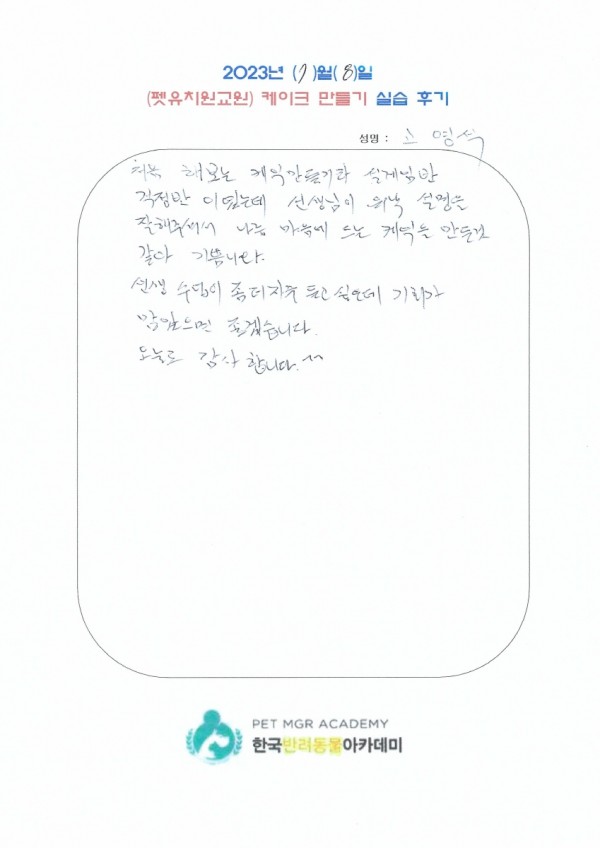 2023년 (7)월(8)일
(펫유치원교원) 케이크 만들기 실습 후기
성명 : 고영석
처음 해보는 케익만들기라 설레임반
걱정반 이였는데 선생님이 워낙 설명을
잘해주셔서 나름 마음에 드는 케익을 만든것
같다 기쁩니다.
선생 수업이 좀더자주 듣고 싶은데 기회가
많았으면 좋겠습니다.
오늘도 감사합니다.^^
PET MGR ACADEMY
한국반려동물아카데미